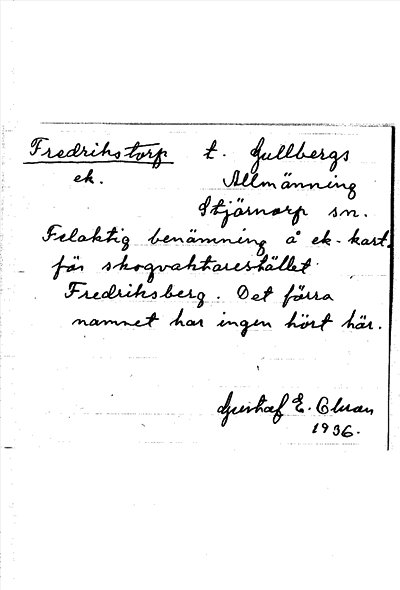 Fredrikstorp t. Gullbergs
ek. Allmänning
Stjärnorp sn.
Felaktig benämning å ek-kart.
för skogvaktarestället
Fredriksberg. Det förra
namnet har ingen hört här.
Gustaf E. Olman
1936.